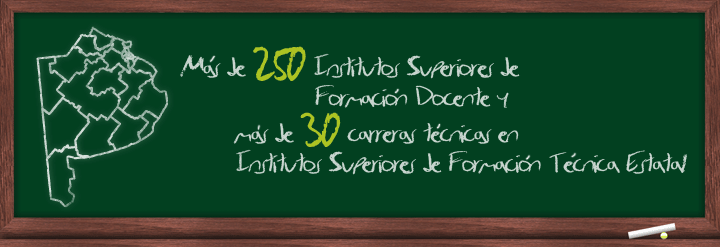 Más de 250 Institutos Superiores de
Formación Docente y
más de 30 carreras técnicas en
Institutos Superiores de Formación Técnica Estatal